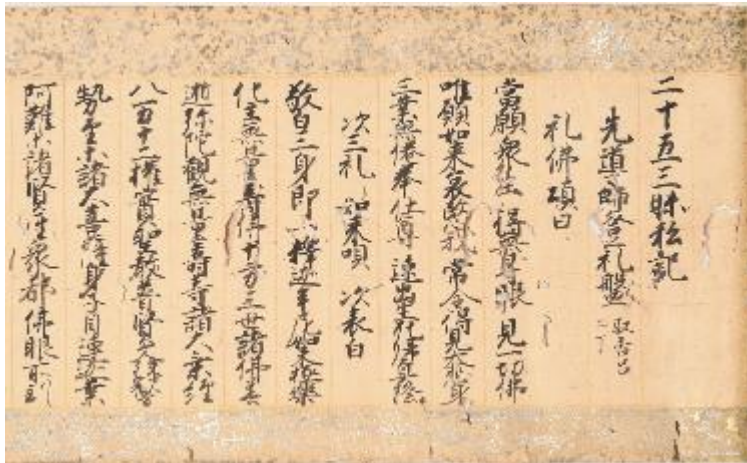 二十五三昧私記
先導師登礼盤 取香呂
礼佛頌曰
當願衆生 得無㝵眼 見一切佛
唯願如来哀愍我 常令得見大悲身
三業無倦奉仕尊 速出生死歸真際
次三礼 如来唄 次表白
敬白三身即一釋迦牟尼如来極樂
化主無量壽佛十方三世諸佛善
逝弥陀觀無量壽等諸大乗経
八万十二權實聖教普賢文殊觀音
勢至等諸大善薩身子目連迦葉
阿難等諸賢聖衆都佛眼所